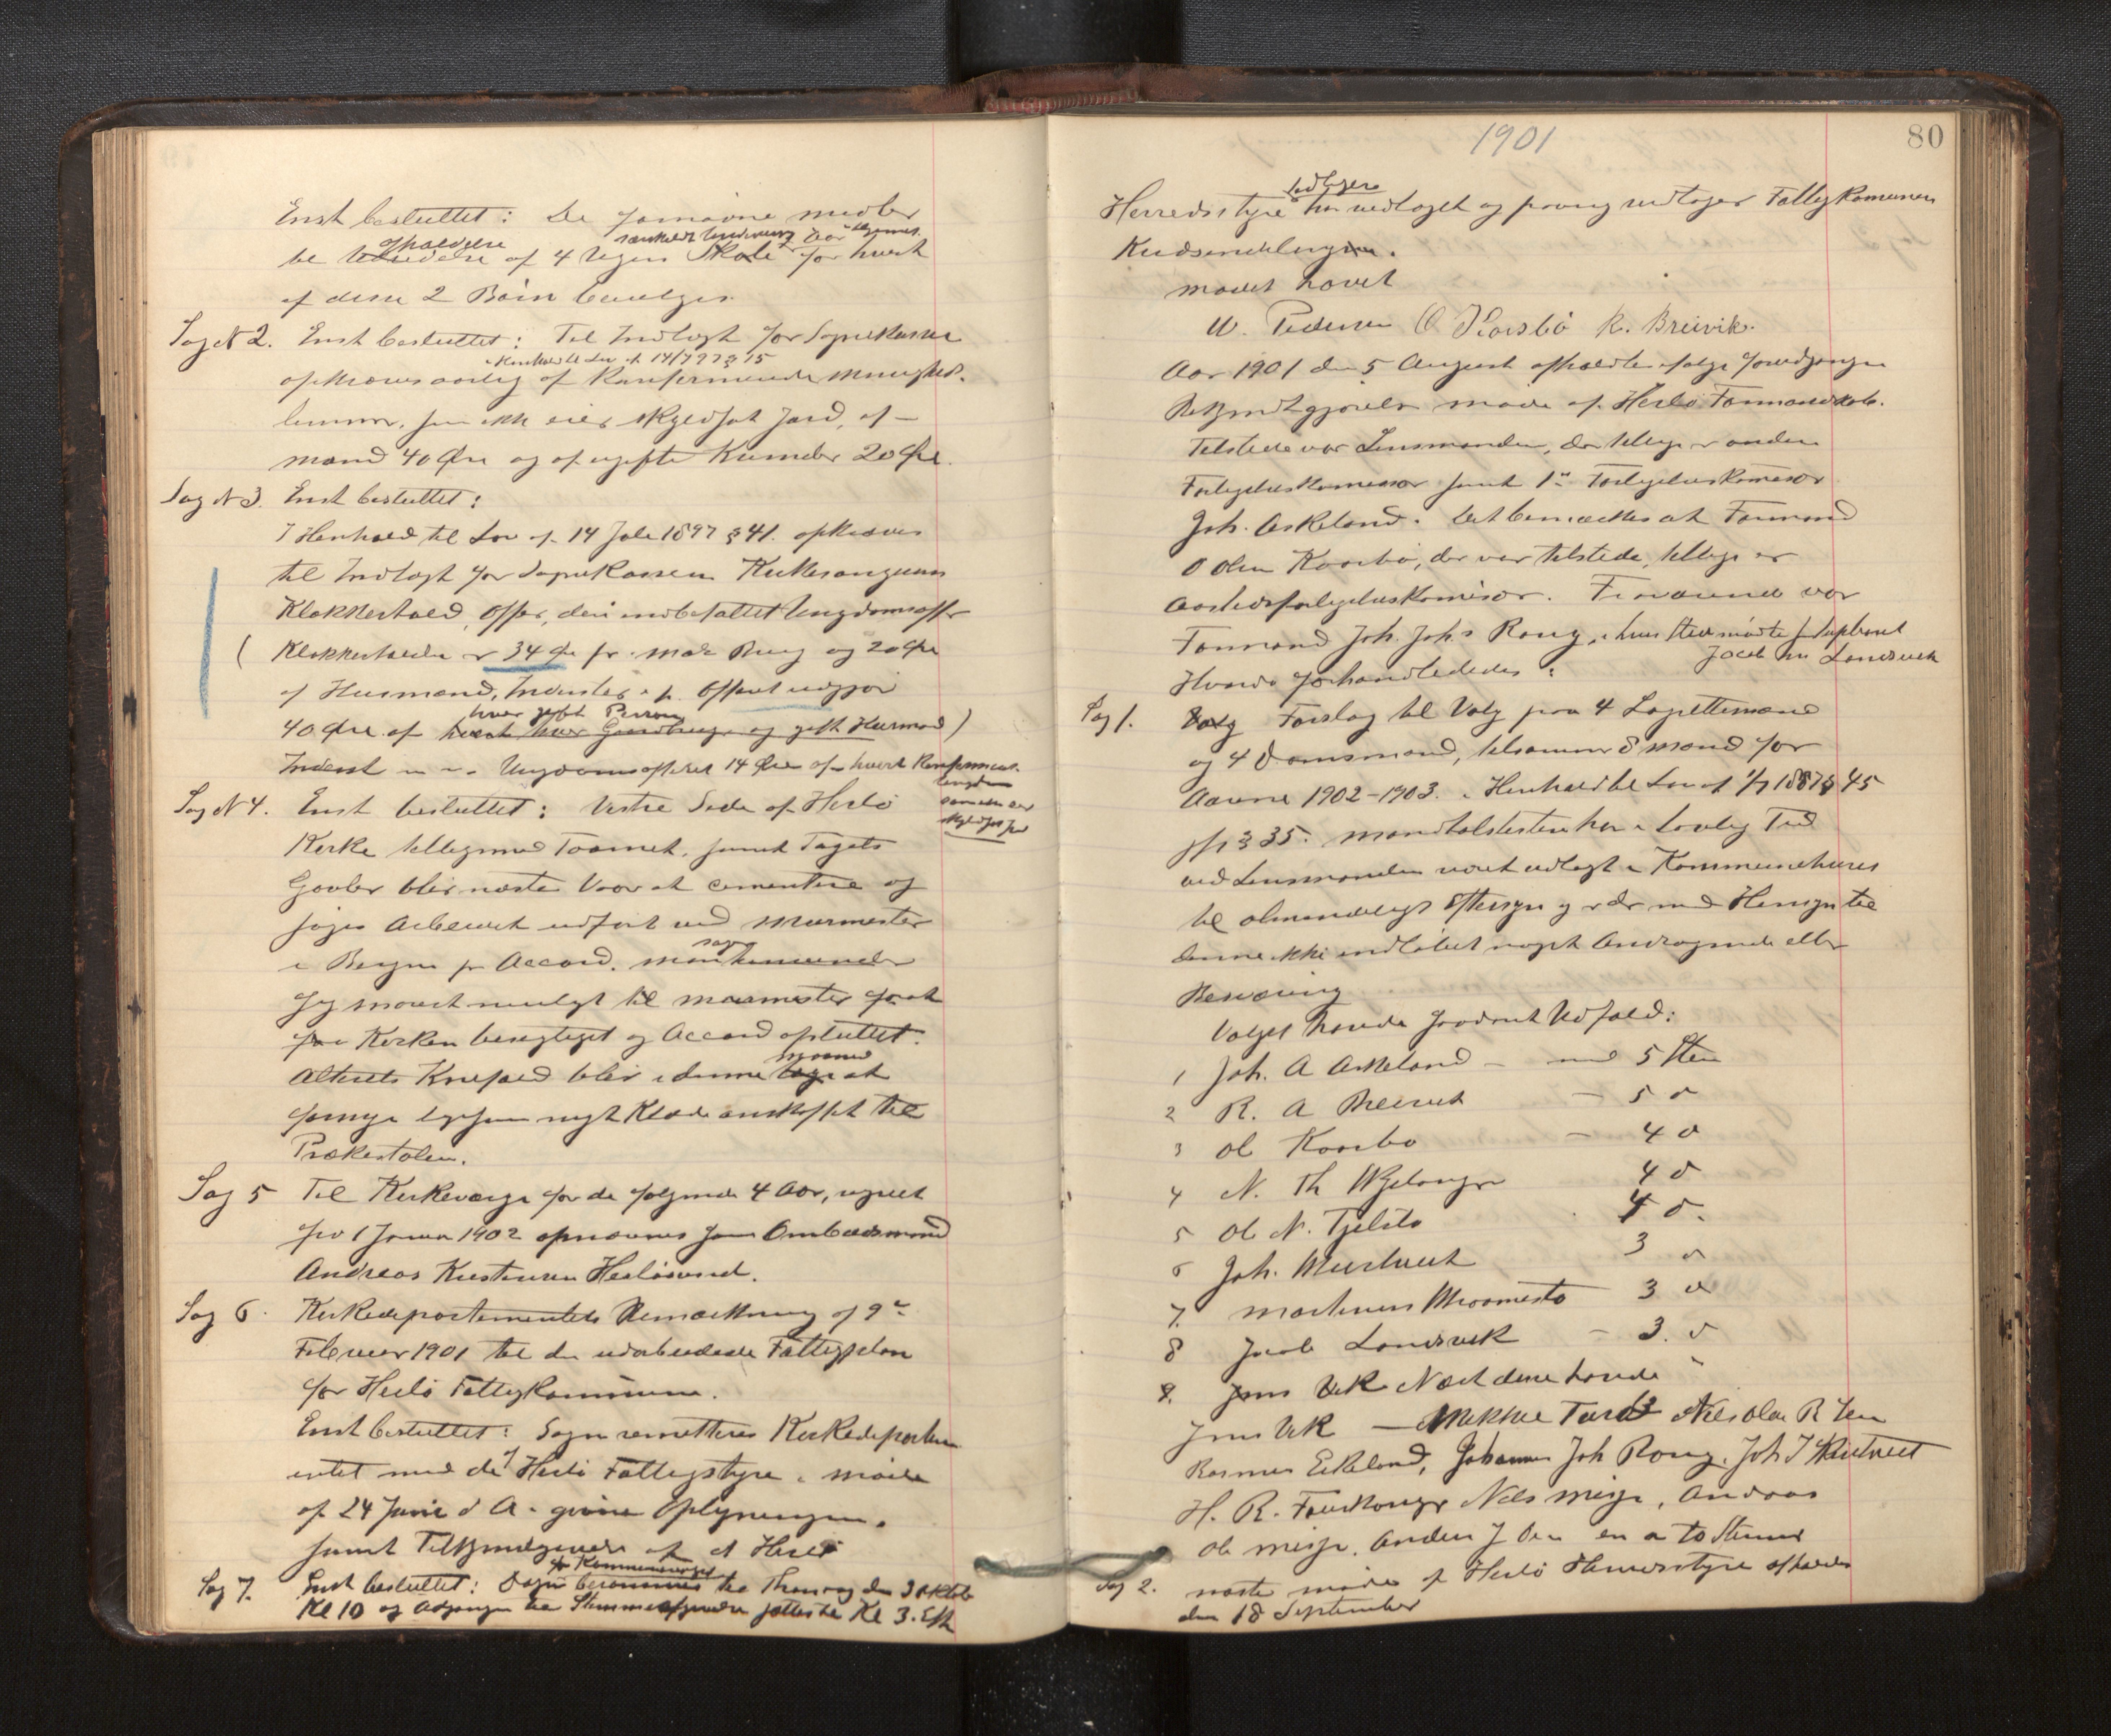 Enst besluttet: De fornævne midler
afholdelse særskilt Underviisning i Aar
til Udvidelse af 4 Ugers Skole for hvert
af disse 2 Børn bevilges.
Sag N 2. Enst besluttet: Til Indtægt for Sognekassen
i Henhold til Lov af 14/7 97 § 15
opkræves aarlig af konfirmerede Menigheds-
lemmer, som ikke eier skyldsat Jord, af
Mænd 40 Øre og af ugifte Kvinder 20 Øre.
Sag N 3. Enst besluttet:
I Henhold til Lov af 14 Juli 1897 § 41. opkræves
til Indtægt for Sognekassen Kirkesangerens
Klokkertold, Offer, deri indbefattet Ungdomsoffer
( Klokkertolden er 34 Øre pr. mat. Brug og 20 Øre
af Husmænd, Inderster o. s. Offeret udgjør
hver gift Person
40 Øre af hvert hver Gaardbruger og gift Husmand )
Inderst Ungdomsofferet 14 Øre af hvert Konfirmeret
Ungdom
som ikke eier
skyldsat Jord
Sag N 4. Enst besluttet: Vestre Side af Herlø
Kirke tilligemed Taarnet, samt Tagets
Gavler blir næste Vaar at cementere og
søges Arbeidet udført ved Murmester
i Bergen pr Accord.
snarest muligt til Murmester for at
faa Kirken besigtiget og Accord afsluttet.
Alterets Knefald blir i denne at
fornye ligesom nyt Klæde anskaffet til
Prækestolen.
Sag 5 Til Kirkeværge for de følgende 4 Aar, regnet
fra 1 Januar 1902 opnævnes som Ombudsmand
Andreas Kristensen Herløsund.
Sag 6. Kirkedepartementets Bemærkning af 9de
Februar 1901 til den udarbeidede Fattigplan
for Herlø Fattigkommune.
Enst besluttet: Sagen remitteres Kirkedeparte-
mentet med de af Herlø Fattigstyre i Møde
af 24 Juni d A. givne Oplysninger.
samt Tilkjendegivende at Herlø
for Kommunevalget
Sag 7. Enst besluttet: Dagen berammes til Thorsdag den 3 Oktob
Kl 10 og Adgangen til Stemmeafgivelse sættes til Kl 3. Eft
1901
80
tidligere
Herredsstyre har vedtaget og paany vedtager Fattigkommunens
Kredsinddeling.
Mødet hævet
W. Pedersen O Kårsbø R. Breivik.
Aar 1901 den 5 August afholdtes ifølge foregaaende
Bekjendtgjørelse Møde af Herlø Formandskab.
Tilstede var Lensmanden, der tillige er anden
Forligelseskommissær samt 1ste Forligelseskommissær
Joh. Askeland. Det bemærkes at Formand
O Olsen Kaarbø, der var tilstede, tillige er
Aastedsforligelseskommissær. Fraværende var
Formand Joh. Johs Rong, i hvis Sted mødte Suppleant
Jacob Landsvik
Hvorda forhandledes:
Sag 1. Valg Forslag til Valg paa 4 Lagrettemænd
og 4 Domsmænd, tilsammen 8 Mænd for
Aarene 1902-1903. i Henhold til Lov af 1/7 1887 § 45
jfr § 35. Mandtalslisten har i lovlig Tid
ved Lensmanden været udlagt i Kommunehuset
til almindeligt Eftersyn og er der med Hensyn til
denne ikke indløbet noget Andragende eller
Besværing
Valget havde saadant Udfald:
1 Joh. A Askeland – med 5 Stem
2 R. A Breivik – 5 d
3 Ol Kaarbø – 4 d
4 N. Th Kjelanger 4 d
5 Ol N. Tjeldstø 4 d.
6 Joh. 3 d
7. Martinus 3 d
8 Jacob Landsvik – 3. d
9. Jens Vik Næst disse havde
Jens Vik – Mikkel Nils Olai R
Rasmus Eikeland, Johannes Joh Rong, Joh J
H. R. Nils Misje, Andreas
Ol Misje, Anders J en a to Stemmer
Sag 2. Næste Møde af Herlø Herredsstyre afholdes
den 18 September